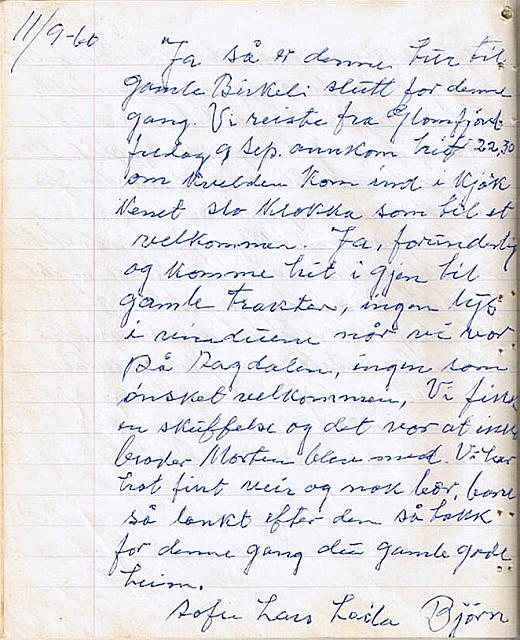 11/9-60
Ja så er denne tur til
gamle Birkeli slutt for denne
gang. Vi reiste fra Glomfjord
fredag 9 Sep. annkom hit 22,30
om kvelden kom ind i kjök
kenet slo klokka som til et
velkommen. Ja, forunderlig
og komme hit i gjen til
gamle trakter, ingen lys
i vinduene når vi var
på Dagdalen, ingen som
ønsket velkommen, Vi fikk
en skuffelse og det var at ikke
broder Morten blev med. Vi har
hat fint veir og nok bær, bare
så lankt efter den så takk
for denne gang du gamle gode
heim.
Sofie Lars Laila Björn